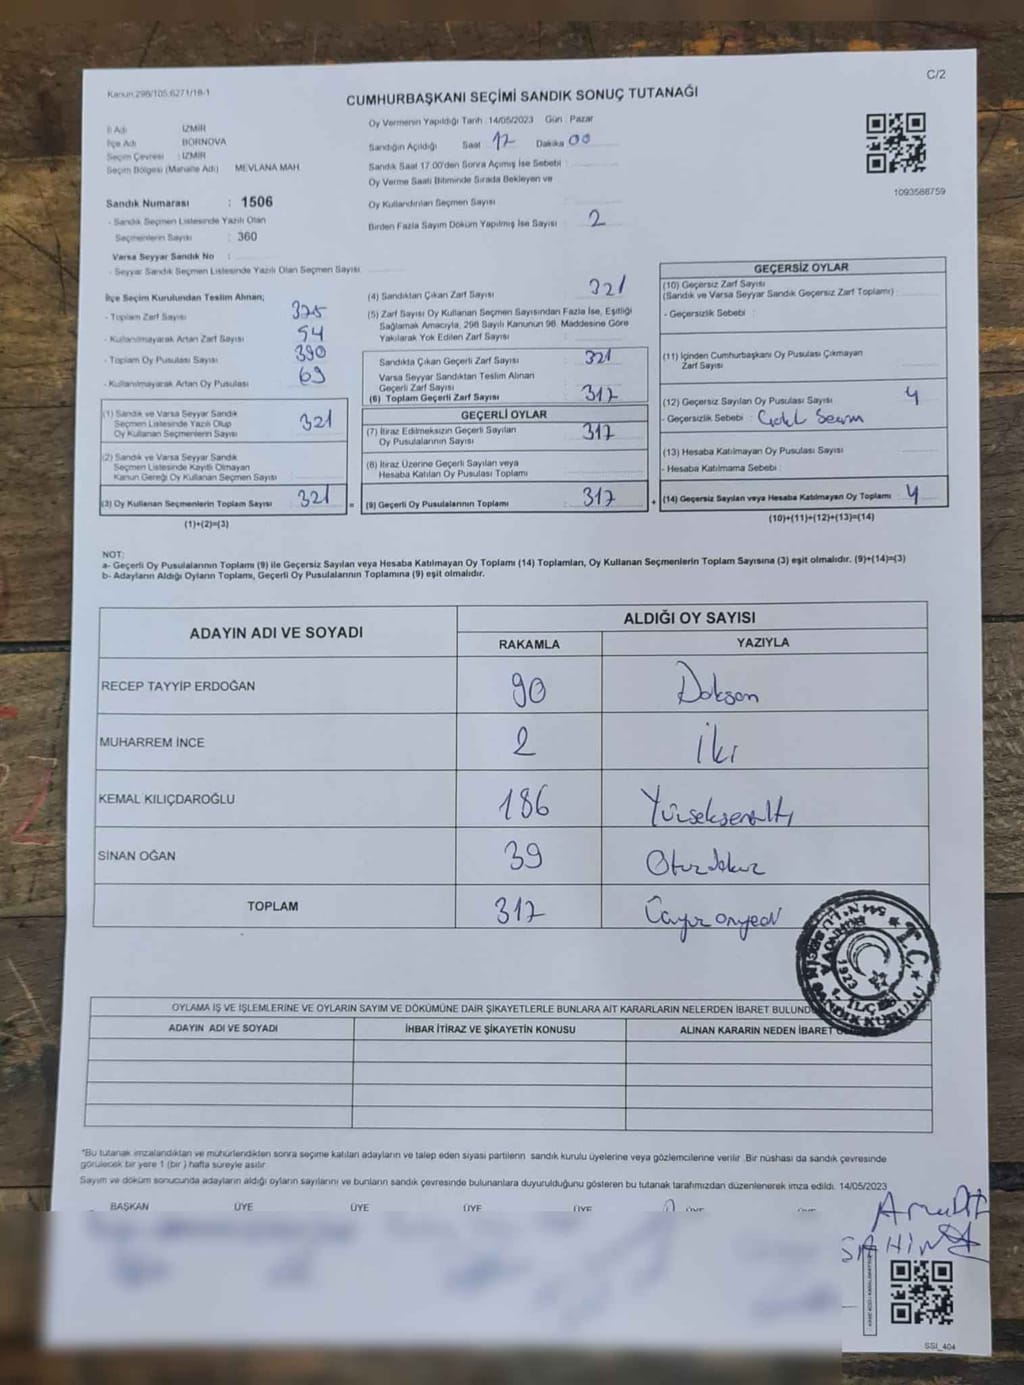 C/2
Kanun:298/105,6271/18-1
CUMHURBAŞKANI SEÇİMİ SANDIK SONUÇ TUTANAĞI
İl Adı İZMİR
İlçe Adı BORNOVA
Seçim Çevresi : İZMİR
Seçim Bölgesi (Mahalle Adı) MEVLANA MAH.
Oy Vermenin Yapıldığı Tarih : 14/05/2023 Gün : Pazar
Sandığın Açıldığı Saat 17 Dakika 00
Sandık Saat 17.00'den Sonra Açımış İse Sebebi :
Oy Verme Saati Bitiminde Sırada Bekleyen ve
Oy Kullandırılan Seçmen Sayısı :
Birden Fazla Sayım Döküm Yapılmış İse Sayısı : 2
1093588759
Sandık Numarası : 1506
- Sandık Seçmen Listesinde Yazılı Olan
Seçmenlerin Sayısı : 360
Varsa Seyyar Sandık No :
- Seyyar Sandık Seçmen Listesinde Yazılı Olan Seçmen Sayısı
İlçe Seçim Kurulundan Teslim Alınan;
- Toplam Zarf Sayısı 375
- Kullanılmayarak Artan Zarf Sayısı 54
- Toplam Oy Pusulası Sayısı 390
- Kullanılmayarak Artan Oy Pusulası 69
(1) Sandık ve Varsa Seyyar Sandık
Seçmen Listesinde Yazılı Olup
Oy Kullanan Seçmenlerin Sayısı 321
(2) Sandık ve Varsa Seyyar Sandık
Seçmen Listesinde Kayıtlı Olmayan
Kanun Gereği Oy Kullanan Seçmen Sayısı
(3) Oy Kullanan Seçmenlerin Toplam Sayısı 321
(1)+(2)=(3)
(4) Sandıktan Çıkan Zarf Sayısı : 321
(5) Zarf Sayısı Oy Kullanan Seçmen Sayısından Fazla İse, Eşitliği
Sağlamak Amacıyla, 298 Sayılı Kanunun 98. Maddesine Göre
Yakılarak Yok Edilen Zarf Sayısı :
Sandıkta Çıkan Geçerli Zarf Sayısı : 321
Varsa Seyyar Sandıktan Teslim Alınan
Geçerli Zarf Sayısı
(6) Toplam Geçerli Zarf Sayısı : 317
GEÇERLİ OYLAR
(7) İtiraz Edilmeksizin Geçerli Sayılan
Oy Pusulalarının Sayısı : 317
(8) İtiraz Üzerine Geçerli Sayılan veya
Hesaba Katılan Oy Pusulası Toplamı :
= (9) Geçerli Oy Pusulalarının Toplamı : 317 +
GEÇERSİZ OYLAR
(10) Geçersiz Zarf Sayısı
(Sandık ve Varsa Seyyar Sandık Geçersiz Zarf Toplamı) :
- Geçersizlik Sebebi :
(11) İçinden Cumhurbaşkanı Oy Pusulası Çıkmayan
Zarf Sayısı :
(12) Geçersiz Sayılan Oy Pusulası Sayısı : 4
- Geçersizlik Sebebi :
(13) Hesaba Katılmayan Oy Pusulası Sayısı :
- Hesaba Katılmama Sebebi :
(14) Geçersiz Sayılan veya Hesaba Katılmayan Oy Toplamı : 4
(10)+(11)+(12)+(13)=(14)
NOT:
a- Geçerli Oy Pusulalarının Toplamı (9) ile Geçersiz Sayılan veya Hesaba Katılmayan Oy Toplamı (14) Toplamları, Oy Kullanan Seçmenlerin Toplam Sayısına (3) eşit olmalıdır. (9)+(14)=(3)
b- Adayların Aldığı Oyların Toplamı, Geçerli Oy Pusulalarının Toplamına (9) eşit olmalıdır.
ADAYIN ADI VE SOYADI
ALDIĞI OY SAYISI
RAKAMLA YAZIYLA
RECEP TAYYİP ERDOĞAN 90 Doksan
MUHARREM İNCE 2 İki
KEMAL KILIÇDAROĞLU 186 Yüzseksenaltı
SİNAN OĞAN 39 Otuzdokuz
TOPLAM 317 Üçyüz onyedi
T.C. 1923
OYLAMA İŞ VE İŞLEMLERİNE VE OYLARIN SAYIM VE DÖKÜMÜNE DAİR ŞİKAYETLERLE BUNLARA AİT KARARLARIN NELERDEN İBARET BULUND
ADAYIN ADI VE SOYADI İHBAR İTİRAZ VE ŞİKAYETİN KONUSU ALINAN KARARIN NEDEN İBARET
*Bu tutanak imzalandıktan ve mühürlendikten sonra seçime katılan adayların ve talep eden siyasi partilerin sandık kurulu üyelerine veya gözlemcilerine verilir .Bir nüshası da sandık çevresinde
görülecek bir yere 1 (bir ) hafta süreyle asılır
Sayım ve döküm sonucunda adayların aldığı oyların sayılarını ve bunların sandık çevresinde bulunanlara duyurulduğunu gösteren bu tutanak tarafımızdan düzenlenerek imza edildi. 14/05/2023
BAŞKAN ÜYE ÜYE ÜYE ÜYE ÜYE
SSI_404